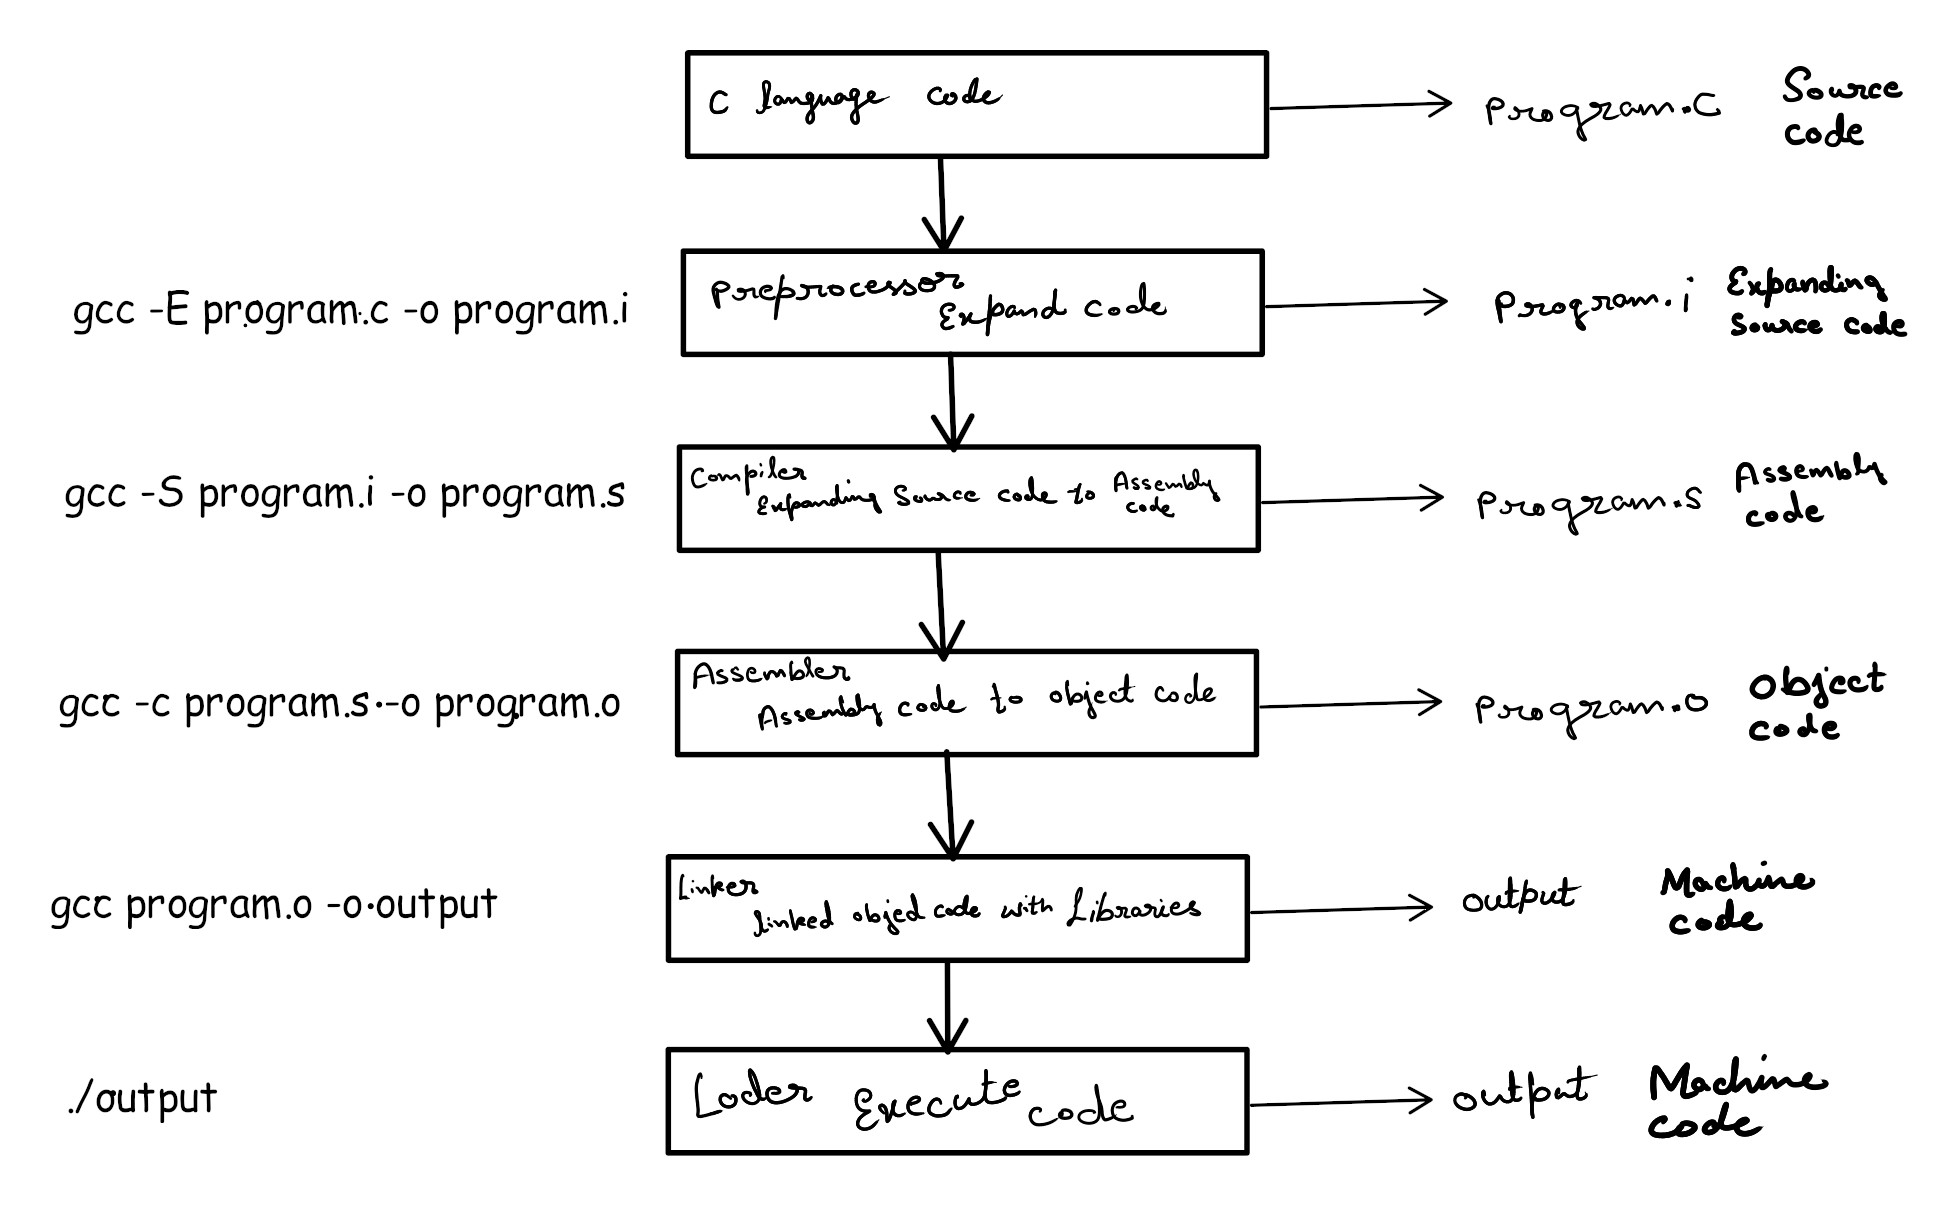 C language code
program.c
Source
code
gcc -E program.c -o program.i
Preprocessor
Expand code
program.i
Expanding
Source code
gcc -S program.i -o program.s
Compiler
Expanding Source code to Assembly
code
program.s
Assembly
code
gcc -c program.s -o program.o
Assembler
Assembly code to object code
program.o
Object
code
gcc program.o -o output
Linker
linked objed code with Libraries
output
Machine
code
./output
Loder Execute code
output
Machine
code